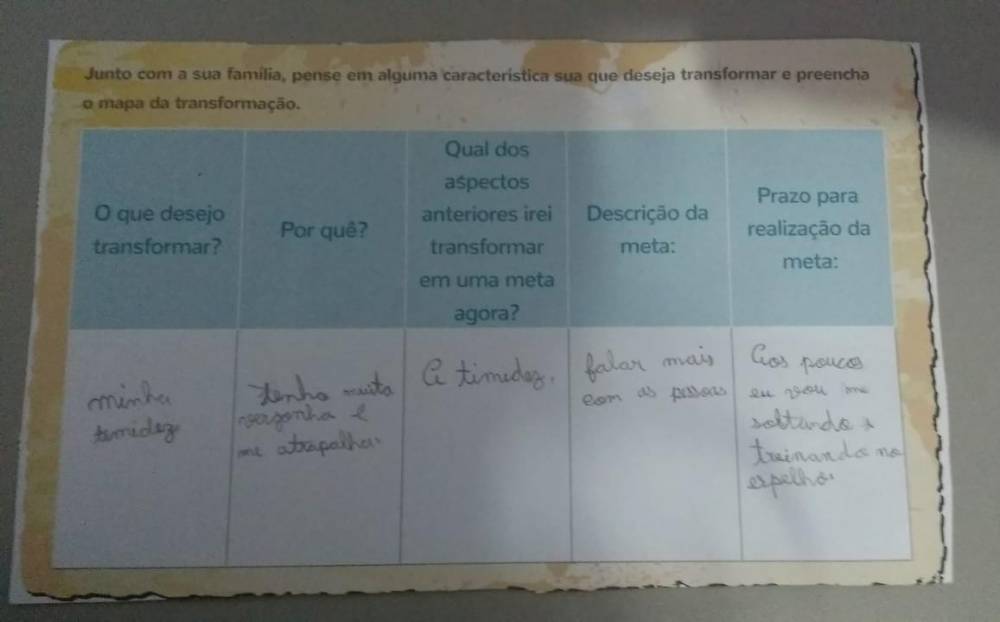 Junto com a sua família, pense em alguma característica sua que deseja transformar e preencha
o mapa da transformação.
O que desejo
transformar?
Por quê?
Qual dos
aspectos
anteriores irei
transformar
em uma meta
agora?
Descrição da
meta:
Prazo para
realização da
meta:
minha
timidez
tenho muita
vergonha e
me atrapalha.
A timidez.
falar mais
com as pessoas
Aos poucos
eu vou me
soltando e
treinando no
espelho.